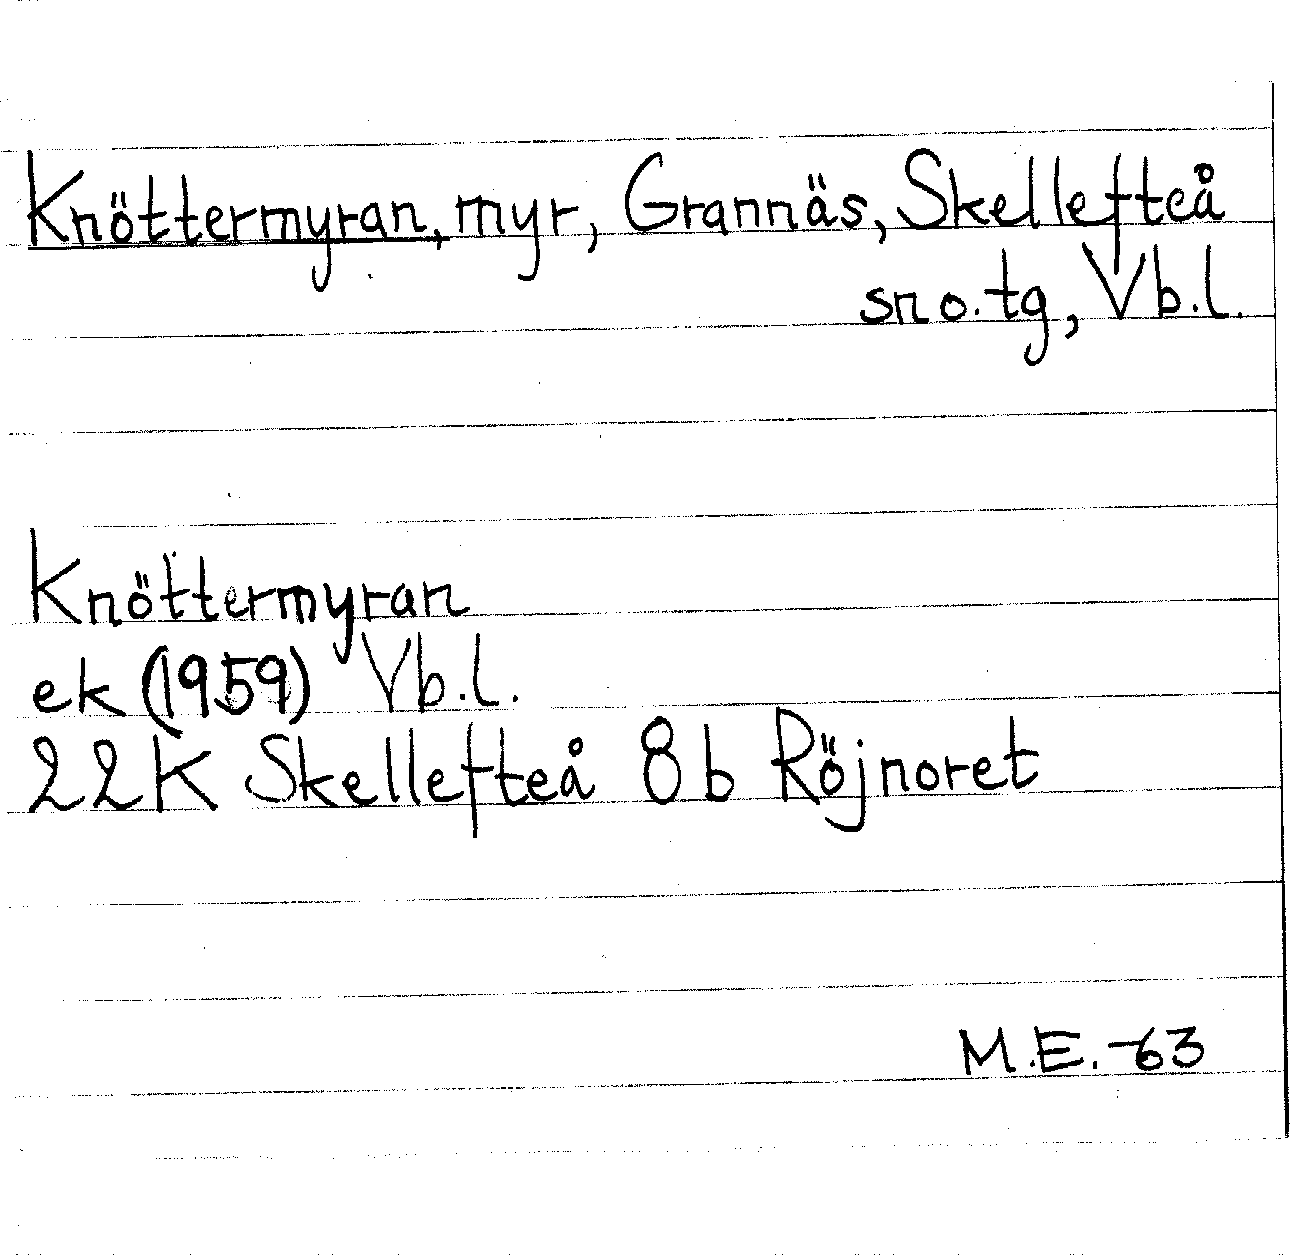 Knöttermyran, myr, Grannäs, Skellefteå
sn o. tg, Vb.l.
Knöttermyran
ek (1959) Vb.l.
22K Skellefteå 8b Röjnoret
M.E. -63